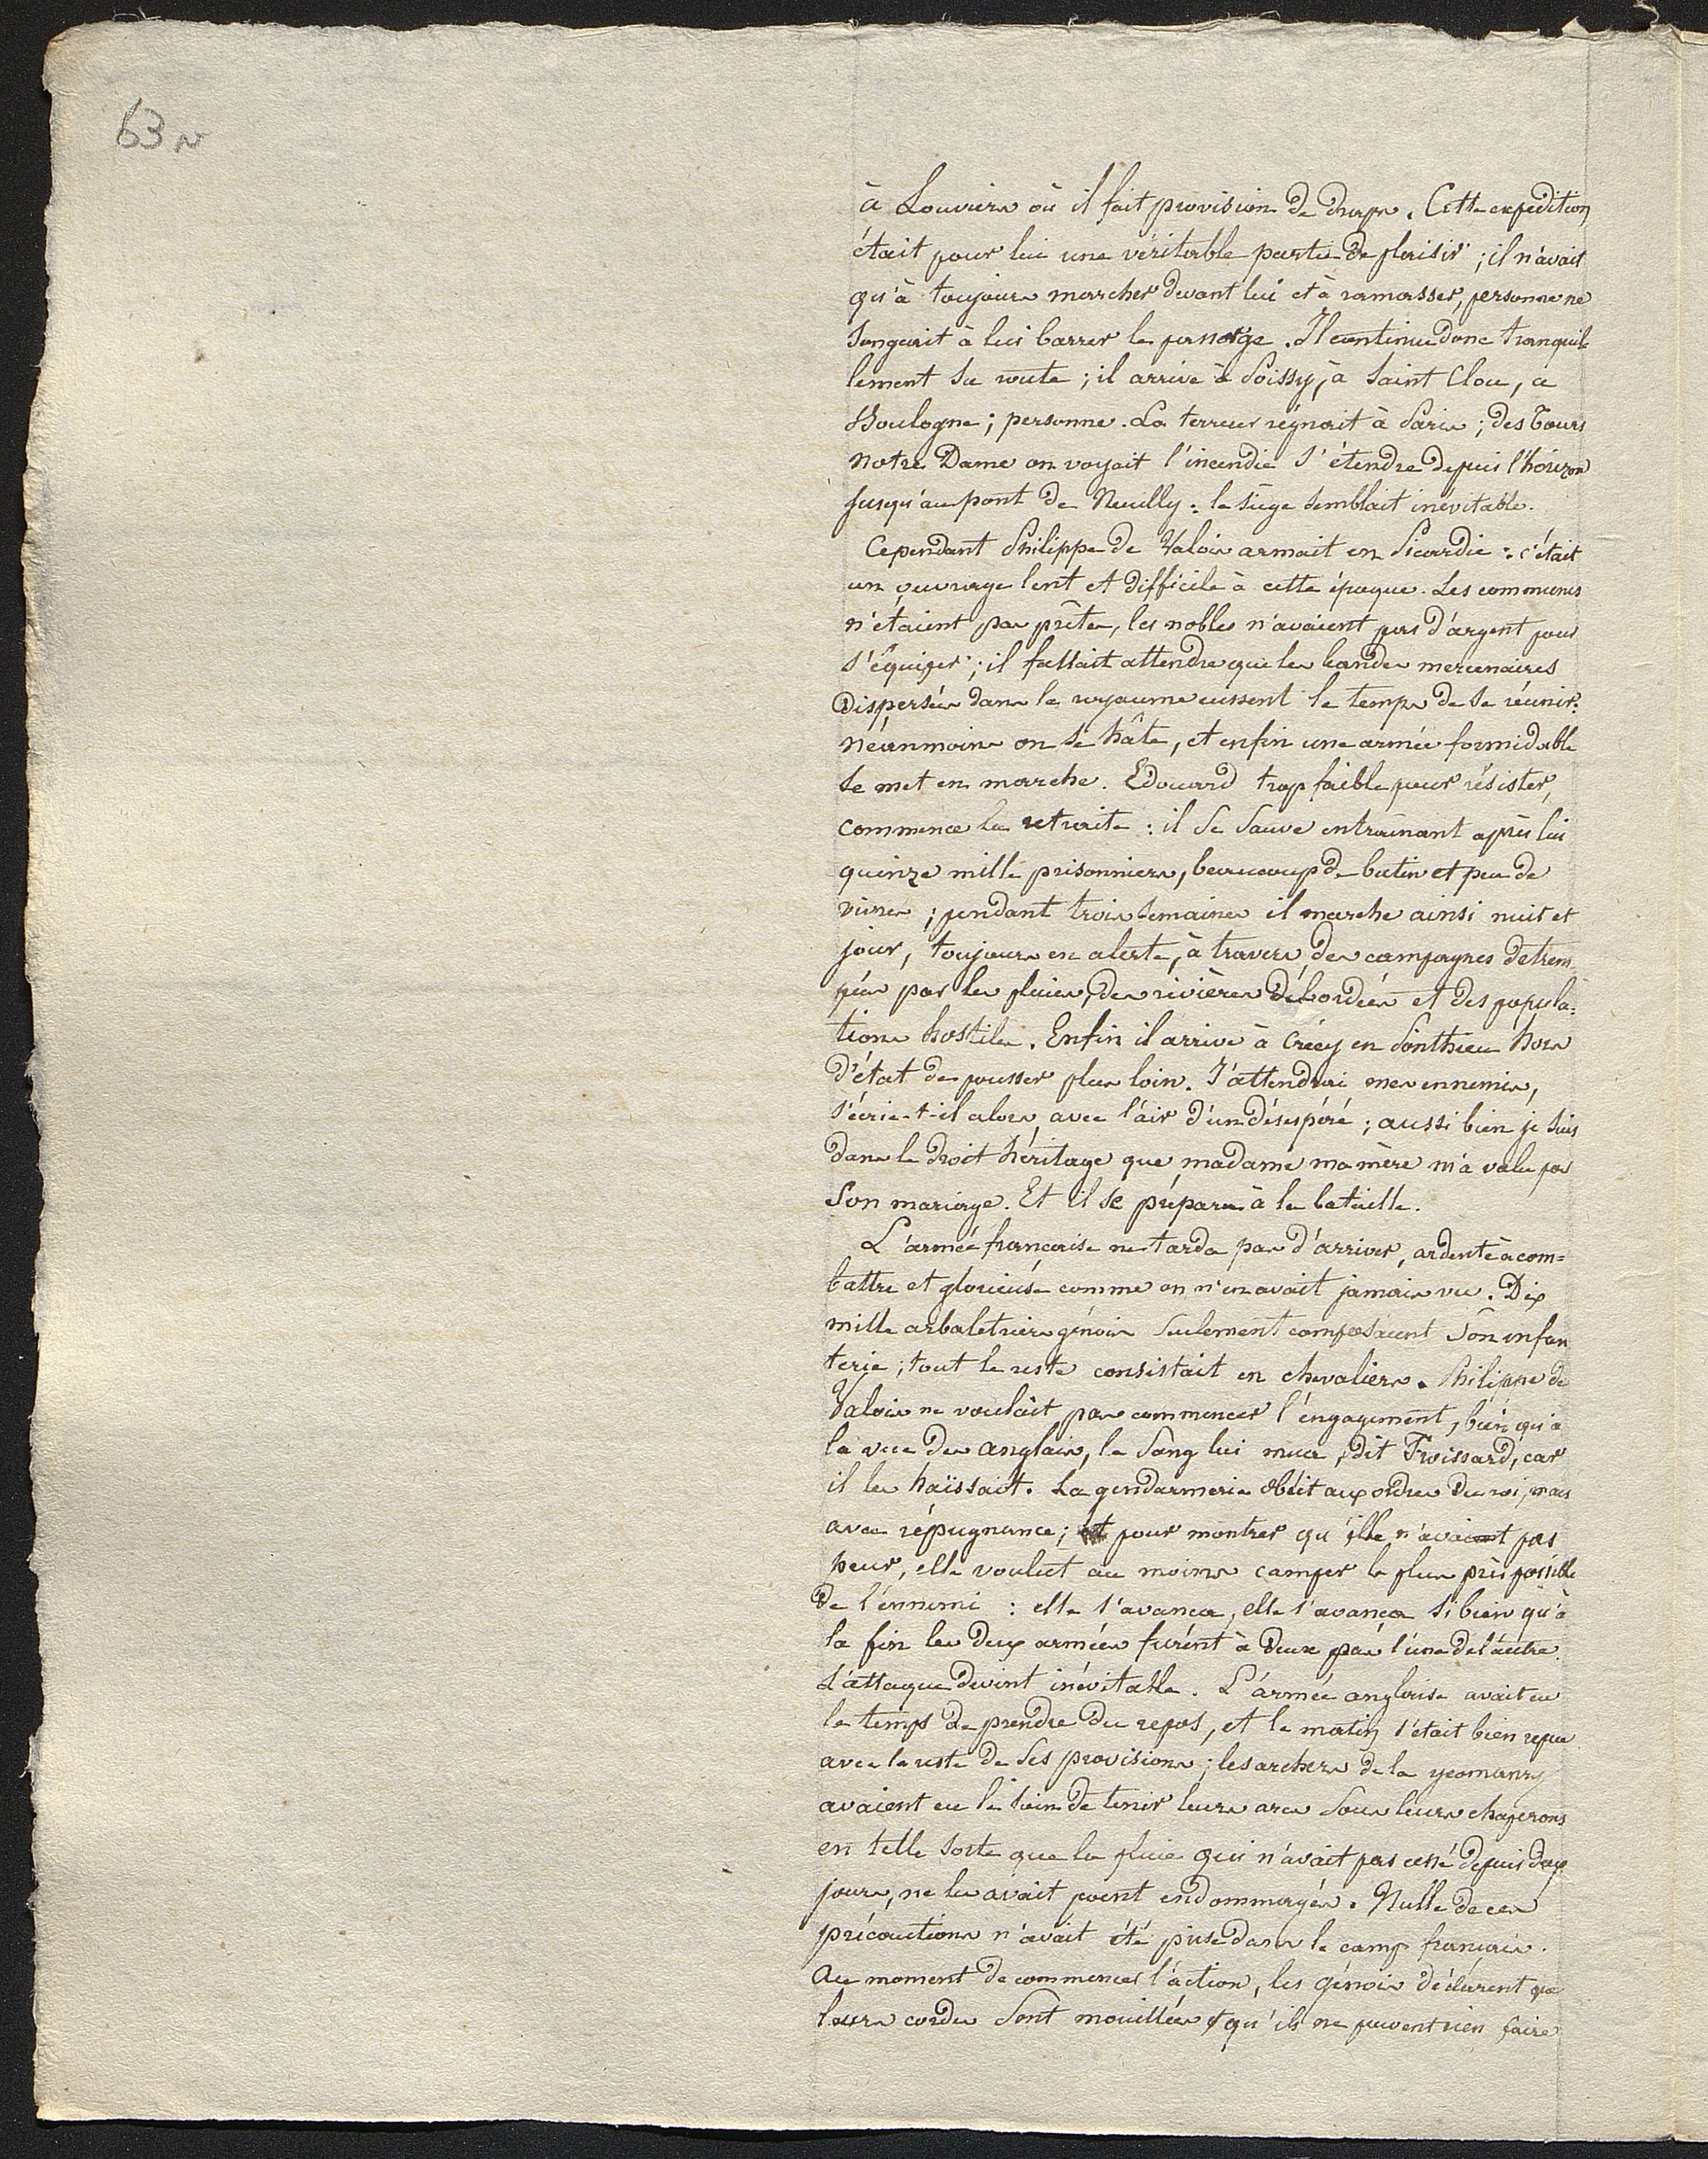 63 v
à Louviers où il fait provision de draps. Cette expédition
était pour lui une véritable partie de plaisir ; il n'avait
qu'à toujours marcher devant lui et à ramasser, personne ne
songeait à lui barrer le passage. Il continue donc tranquil
lement sa route ; il arrive à Poissy, à Saint Clou, a
Boulogne ; personne. La terreur régnait à Paris ; des Tours
Notre Dame on voyait l'incendie s'étendre depuis l'horizon
jusqu'au pont de Neuilly : le siège semblait inévitable.
Cependant Philippe de Valois armait en Picardie : c'était
un ouvrage lent et difficile à cette époque. Les communes
n'étaient pas prêtes, les nobles n'avaient pas d'argent pour
s'équiper ; il fallait attendre que les bandes mercenaires
dispersées dans le royaume eussent le temps de se réunir.
Néanmoins on se hâte, et enfin une armée formidable
se met en marche. Edouard trop faible pour résister,
commence la retraite : il se sauve entraînant après lui
quinze mille prisonniers, beaucoup de butin et peu de
vivres ; pendant trois semaines il marche ainsi nuit et
jour, toujours en alerte, à travers des campagnes detrem
pées par les pluies, des rivières débordées et des popula=
tions hostiles. Enfin il arrive à Crécy en Ponthieu hors
d'état de pousser plus loin. J'attendrai mes ennemis,
s'écrie-t-il alors, avec l'air d'un désespéré ; aussi bien je suis
dans le droit héritage que madame ma mère m'a valu par
son mariage. Et il se prépara à la bataille.
L'armée française ne tarda pas d'arriver, ardente à com=
battre et glorieuse comme on n'en avait jamais vu. Dix
mille arbaletriers génois seulement composaient son infan
terie ; tout le reste consistait en chevaliers. Philippe de
Valois ne voulait pas commencer l'engagement, bien qu'à
la vue des anglais, le sang lui mua, dit Froissard, car
il les haïssait. La gendarmerie obéit aux ordres du roi, mais
avec répugnance ; et pour montrer qu'elle n'avait pas
peur, elle voulut au moins camper le plus près possible
de l'ennemi : elle s'avança, elle s'avança si bien qu'à
la fin les deux armées furent à deux pas l'une de l'autre.
L'attaque devint inévitable. L'armée anglaise avait eu
le temps de prendre du repos, et le matin s'était bien repue
avec le reste de ses provisions ; les archers de la yeomanry
avaient eu le soin de tenir leurs arcs sous leurs chaperons
en telle sorte que la pluie qui n'avait pas cessé depuis deux
jours, ne les avait point endommagés. Nulle de ces
précautions n'avait été prise dans le camp français.
Au moment de commencer l'action, les génois déclarent que
leurs cordes sont mouillées & qu'ils ne peuvent rien faire